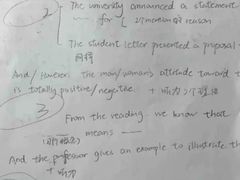 2
The university announced a statement
for
2
reason
The student letter presented a proposal
And/However. the man/woman's attitude toward
is totally positive/negative. +
3
From the reading. we know that
means ——
And the professor gives an example to illustrate th
+ 听力